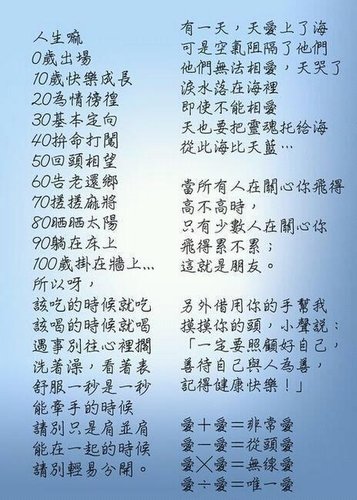 人生嘛
0歲出場
10歲快樂成長
20為情徬徨
30基本定向
40拚命打闖
50回頭相望
60告老還鄉
70搓搓麻將
80晒晒太陽
90躺在床上
100歲掛在牆上...
所以呀，
該吃的時候就吃
該喝的時候就喝
遇事別往心裡擱
洗著澡，看著表
舒服一秒是一秒
能牽手的時候
請別只是肩並肩
能在一起的時候
請別輕易分開。
有一天，天愛上了海
可是空氣阻隔了他們
他們無法相愛，天哭了
淚水落在海裡
即使不能相愛
天也要把靈魂托給海
從此海比天藍…
當所有人在關心你飛得
高不高時，
只有少數人在關心你
飛得累不累；
這就是朋友。
另外借用你的手幫我
摸摸你的頭，小聲說：
「一定要照顧好自己，
善待自己與人為善，
記得健康快樂！」
愛＋愛＝非常愛
愛－愛＝從頭愛
愛×愛＝無線愛
愛÷愛＝唯一愛